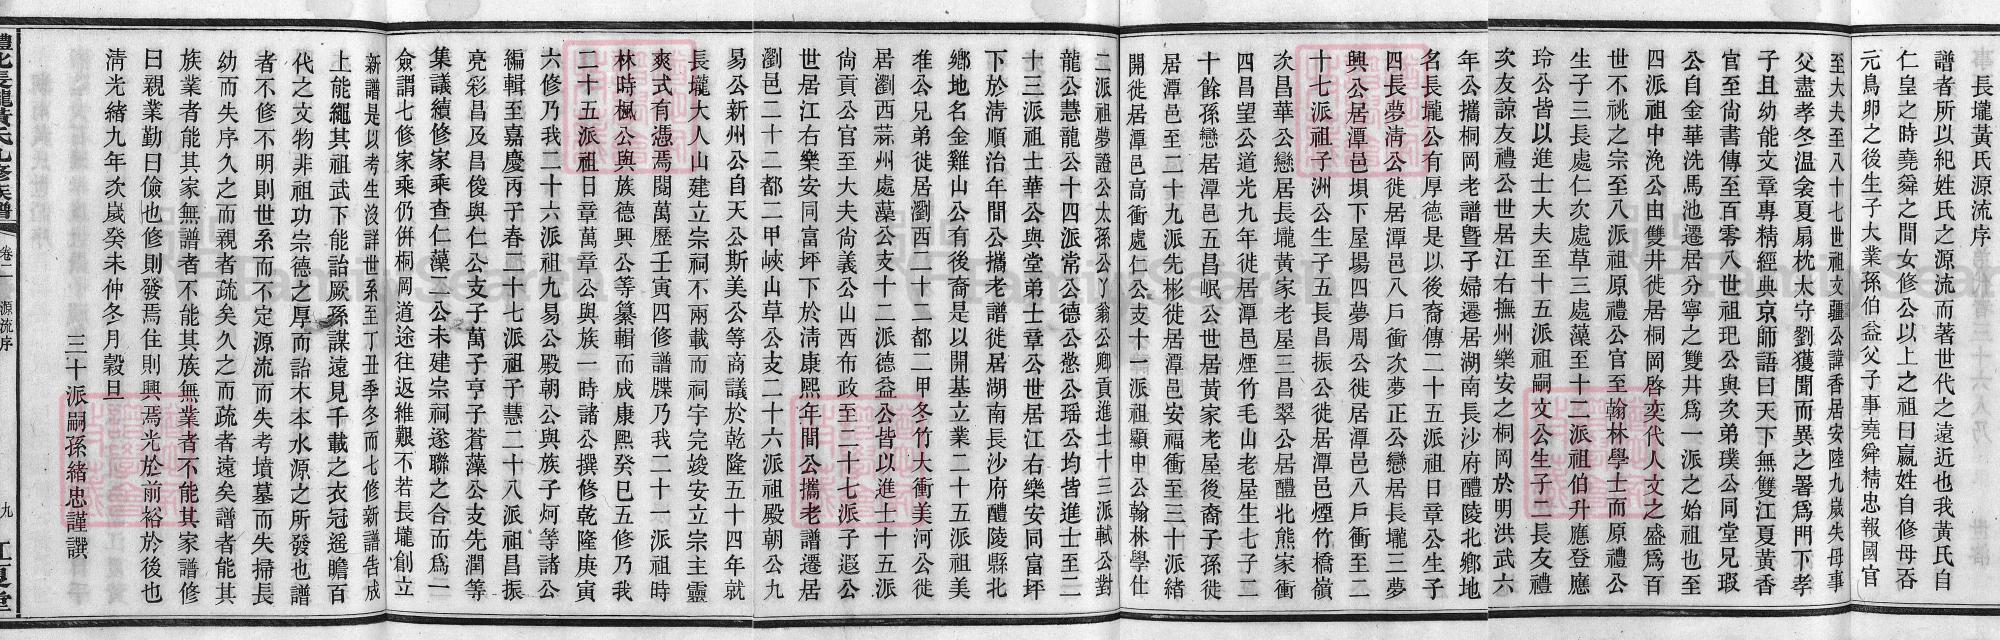 長壠黃氏源流序
譜者所以紀姓氏之源流而著世代之遠近也我黃氏自
仁皇之時堯舜之間女修公以上之祖曰嬴姓自修母吞
元鳥卵之後生子大業孫伯益父子事堯舜精忠報國官
至大夫至八十七世祖文疆公諱香居安陸九歲失母事
父盡孝冬溫衾夏扇枕太守劉獲聞而異之署爲門下孝
子且幼能文章專精經典京師語曰天下無雙江夏黃香
官至尙書傳至百零八世祖玘公與次弟璞公同堂兄瑕
公自金華洗馬池遷居分寧之雙井爲一派之始祖也至
四派祖中浼公由雙井徙居桐岡啓奕代人文之盛爲百
世不祧之宗至八派祖原禮公官至翰林學士而原禮公
生子三長處仁次處草三處藻至十二派祖伯升應登應
玲公皆以進士大夫至十五派祖嗣文公生子二長友禮
次友諒友禮公世居江右撫州樂安之桐岡於明洪武六
年公攜桐岡老譜暨子婦遷居湖南長沙府醴陵北鄉地
名長壠公有厚德是以後裔傳二十五派祖日章公生子
四長夢淸公徙居潭邑八戶衝次夢正公戀居長壠三夢
興公居潭邑埧下屋場四夢周公徙居潭邑八戶衝至二
十七派祖子洲公生子五長昌振公徙居潭邑煙竹橋嶺
次昌華公戀居長壠黃家老屋三昌翠公居醴北熊家衝
四昌望公道光九年徙居潭邑煙竹毛山老屋生七子二
十餘孫戀居潭邑五昌岷公世居黃家老屋後裔子孫徙
居潭邑至二十九派先彬徙居潭邑安福衝至三十派緒
開徙居潭邑高衝處仁公支十一派祖顯申公翰林學仕
二派祖夢證公太孫公丫翁公卿貢進士十三派軾公對
龍公慧龍公十四派常公德公憗公瑶公均皆進士至二
十三派祖士華公與堂弟士章公世居江右樂安同富坪
下於淸順治年間公攜老譜徙居湖南長沙府醴陵縣北
鄉地名金雞山公有後裔是以開基立業二十五派祖美
准公兄弟徙居瀏西二十二都二甲冬竹大衝美河公徙
居瀏西蒜州處藻公支十二派德益公皆以進士十五派
尙貢公官至大夫尙義公山西布政至二十七派子遐公
世居江右樂安同富坪下於淸康熙年間公攜老譜遷居
瀏邑二十二都二甲峽山草公支二十六派祖殿朝公九
易公新州公自天公斯美公等商議於乾隆五十四年就
長壠大人山建立宗祠不兩載而祠宇完竣安立宗主靈
爽式有憑焉閱萬歷壬寅四修譜牒乃我二十一派祖時
林時楓公與族德興公等纂輯而成康熙癸巳五修乃我
二十五派祖日章萬章公與族一時諸公撰修乾隆庚寅
六修乃我二十六派祖九易公殿朝公與族子炣等諸公
編輯至嘉慶丙子春二十七派祖子慧二十八派祖昌振
亮彩昌及昌俊與仁公支子萬子亨子蒼藻公支先潤等
集議續修家乘查仁藻二公未建宗祠遂聯之合而爲一
僉謂七修家乘仍併桐岡道途往返維艱不若長壠創立
新譜是以考生沒詳世系至丁丑季冬而七修新譜告成
上能繩其祖武下能詒厥孫謀遠見千載之衣冠遥瞻百
代之文物非祖功宗德之厚而詒木本水源之所發也譜
者不修不明則世系而不定源流而失考墳墓而失掃長
幼而失序久之而親者疏矣久之而疏者遠矣譜者能其
族業者能其家無譜者不能其族無業者不能其家譜修
曰親業勤曰儉也修則發焉住則興焉光於前裕於後也
淸光緒九年次歲癸未仲冬月穀旦
三十派嗣孫緒忠謹譔
醴北長壠黃氏九修族譜
卷二
源流序
九
江夏堂